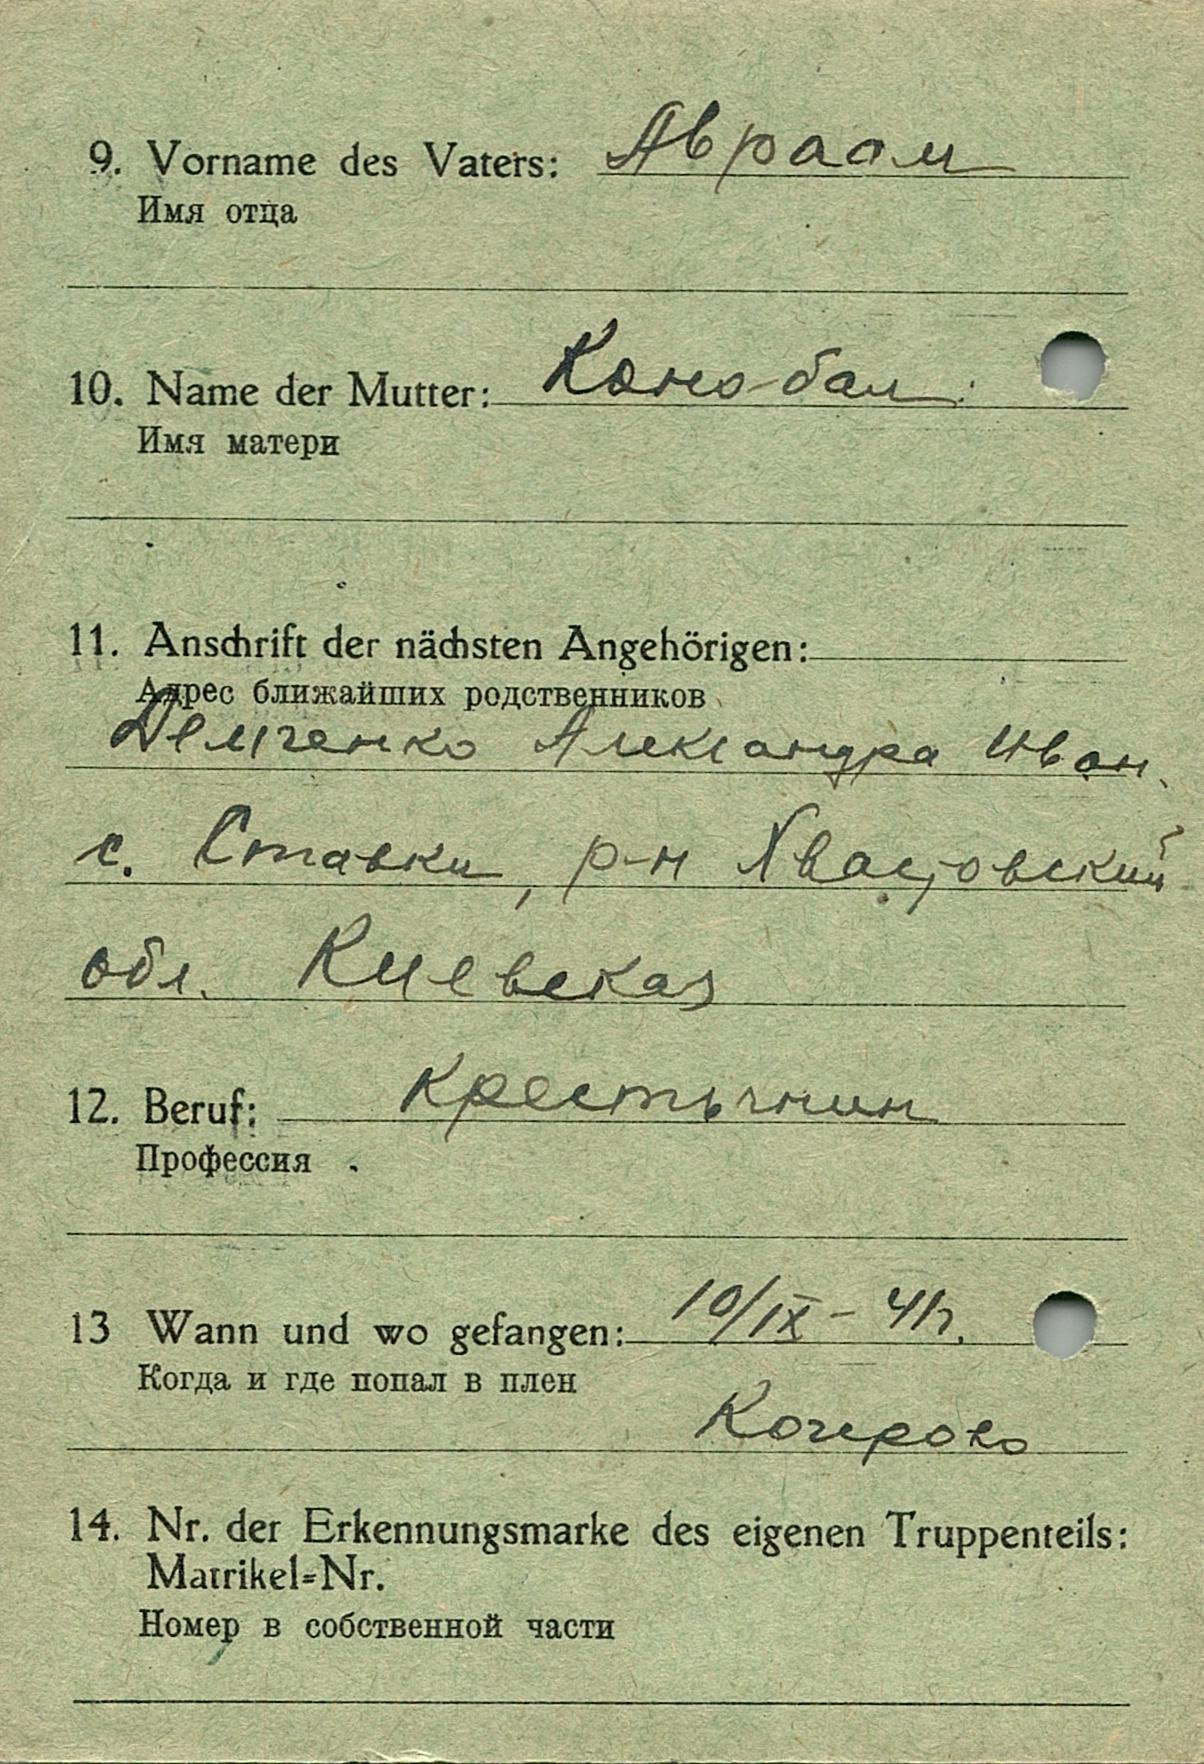 9. Vorname des Vaters: Авраам
Имя отца
10. Name der Mutter: Коно-бал
Имя матери
11. Anschrift der nächsten Angehörigen:
Адрес ближайших родственников
Демченко Александра Иван.
с. Ставки, р-н Хвастовский
обл. Киевская
12. Beruf: крестьянин
Профессия
13 Wann und wo gefangen: 10/IX-41г.
Когда и где попал в плен
Кочерово
14. Nr. der Erkennungsmarke des eigenen Truppenteils:
Matrikel=Nr.
Номер в собственной части